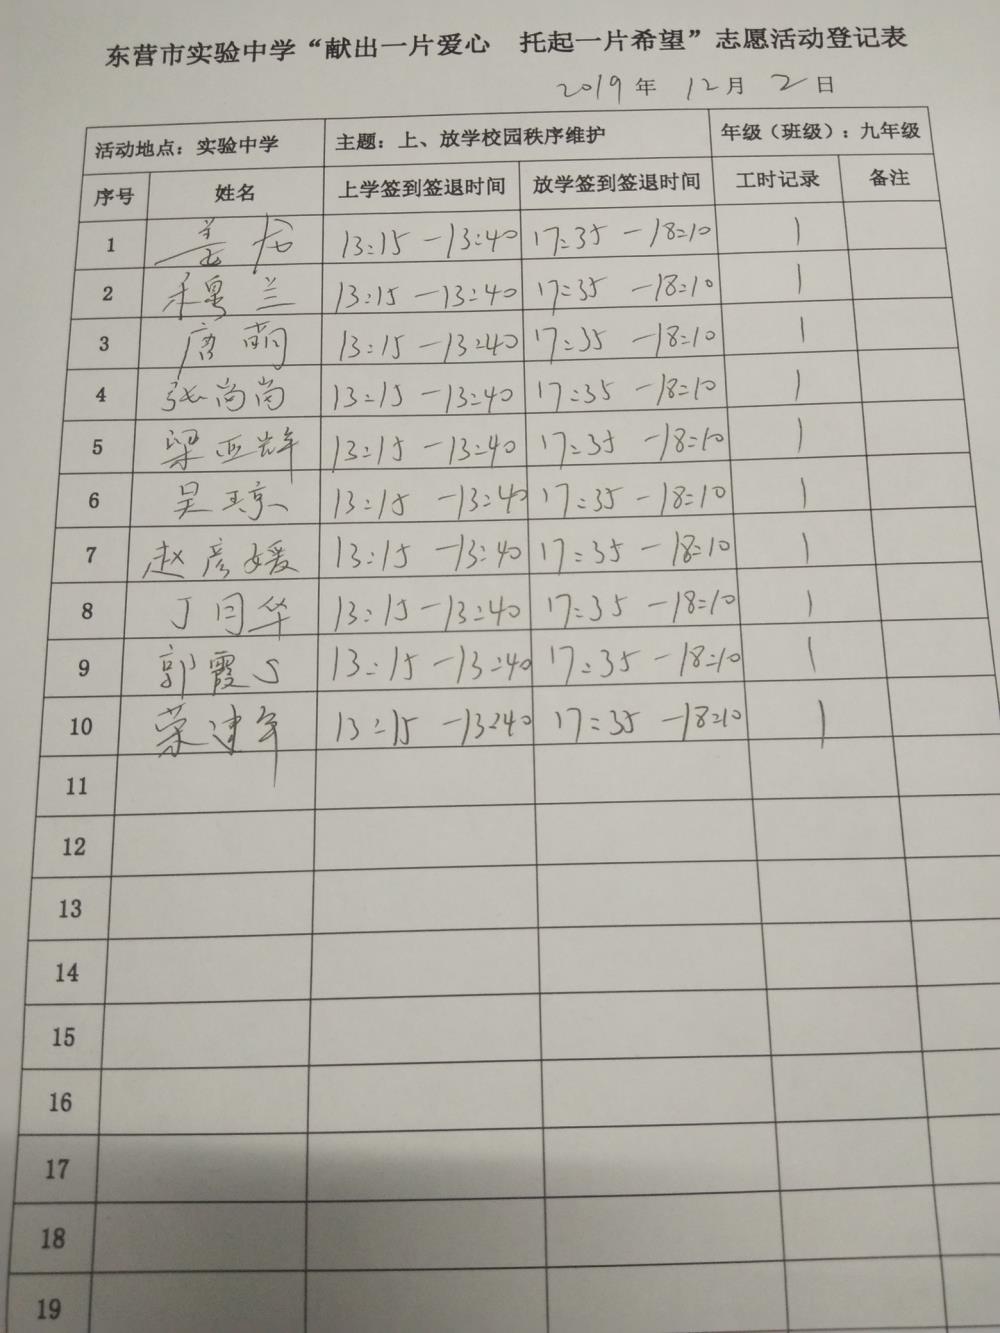 东营市实验中学“献出一片爱心 托起一片希望”志愿活动登记表
2019年 12月 2日
活动地点：实验中学 主题：上、放学校园秩序维护 年级（班级）：九年级
序号 姓名 上学签到签退时间 放学签到签退时间 工时记录 备注
1 13:15 -13:40 17:35 -18:10 1
2 兰 13:15 -13:40 17:35 -18:10 1
3 唐萌 13:15 -13:40 17:35 -18:10 1
4 张尚尚 13:15 -13:40 17:35 -18:10 1
5 梁亚辉 13:15 -13:40 17:35 -18:10 1
6 吴琼 13:15 -13:40 17:35 -18:10 1
7 赵彦媛 13:15 -13:40 17:35 -18:10 1
8 丁月华 13:15 -13:40 17:35 -18:10 1
9 郭霞 13:15 -13:40 17:35 -18:10 1
10 荣建军 13:15 -13:40 17:35 -18:10 1
11
12
13
14
15
16
17
18
19